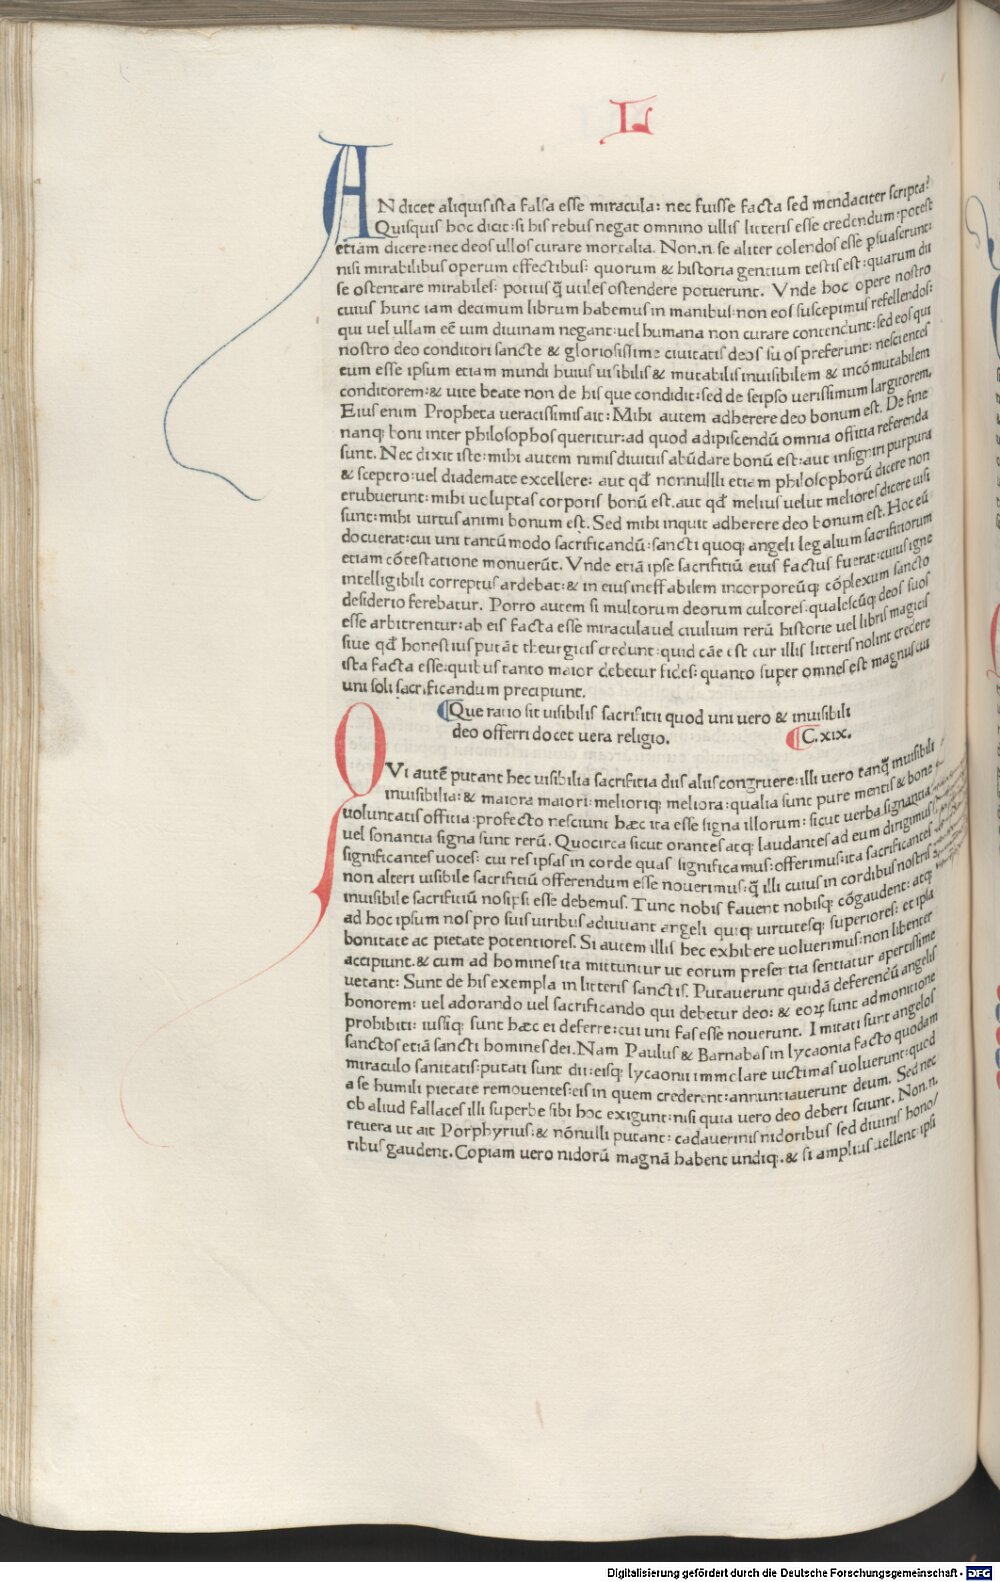 L
AN dicet aliquis ista falsa esse miracula: nec fuisse facta sed mendaciter scripta?
Quisquis hoc dicit: si his rebus negat omnino ullis litteris esse credendum: potest
etiam dicere: nec deos ullos curare mortalia. Non.n se aliter colendos esse psuaserunt:
nisi mirabilibus operum effectibus: quorum & historia gentium testis est: quarum dii
se ostentare mirabiles: potius q̃ utiles ostendere potuerunt. Vnde hoc opere nostro
cuius hunc iam decimum librum habemus in manibus: non eos suscepimus refellendos:
qui uel ullam eẽ uim diuinam negant: uel humana non curare contendunt: sed eos qui
nostro deo conditori sancte & gloriosissime ciuitatis deos suos preferunt: nescientes
eum esse ipsum etiam mundi huius uisibilis & mutabilis inuisibilem & incõmutabilem
conditorem: & uite beate non de his que condidit: sed de seipso uerissimum largitorem.
Eius enim Propheta ueracissimis ait: Mihi autem adherere deo bonum est. De fine
nanq; boni inter philosophos queritur: ad quod adipiscendũ omnia officia referenda
sunt. Nec dixit iste: mihi autem nimis diuitiis abũdare bonũ est: aut insigniri purpura
& sceptro: uel diademate excellere: aut qđ nonnullli etiam philosophorũ dicere non
erubuerunt: mihi uoluptas corporis bonũ est. aut qđ melius uelut meliores dicere uisi
sunt: mihi uirtus animi bonum est. Sed mihi inquit adherere deo bonum est. Hoc eũ
docuerat: cui uni tantũ modo sacrificandũ: sancti quoq; angeli legalium sacrificiorum
etiam cõtestatione monuerũt. Vnde etiã ipse sacrificiũ eius factus fuerat: cuius igne
intelligibili correptus ardebat: & in eius ineffabilem incorporeũq; cõplexum sancto
desiderio ferebatur. Porro autem si multorum deorum cultores: qualescũq; deos suos
esse arbitrentur: ab eis facta esse miracula uel ciuilium rerũ historie uel libris magicis
siue qđ honestius putãt theurgicis credunt: quid cãe est cur illis litteris nolint credere
ista facta esse: quibus tanto maior debetur fides: quanto super omnes est magnus cui
uni soli sacrificandum precipiunt.
Que ratio sit uisibilis sacrificii quod uni uero & inuisibili
deo offerri docet uera religio. C. xix.
QVi autẽ putant hec uisibilia sacrificia diis aliis congruere: illi uero tanq̃ inuisibili
inuisibilia: & maiora maiori: melioriq; meliora: qualia sunt pure mentis & bone
uoluntatis officia: profecto nesciunt hæc ita esse signa illorum: sicut uerba signantia
uel sonantia signa sunt rerũ. Quocirca sicut orantes atq; laudantes ad eum dirigimus
significantes uoces: cui res ipsas in corde quas significamus: offerimus: ita sacrificantes
non alteri uisibile sacrificiũ offerendum esse nouerimus: q̃ illi cuius in cordibus nostris
inuisibile sacrificiũ nos ipsi esse debemus. Tunc nobis fauent nobisq; cõgaudent: atq;
ad hoc ipsum nos pro suis uiribus adiuuant angeli quiq; uirtutesq; superiores: et ipsa
bonitate ac pietate potentiores. Si autem illis hec exhibere uoluerimus: non libenter
accipiunt. & cum ad homines ita mittuntur ut eorum presentia sentiatur apertissime
uetant: Sunt de his exempla in litteris sanctis. Putauerunt quidã deferendũ angelis
honorem: uel adorando uel sacrificando qui debetur deo: & eoꝝ sunt admonitione
prohibiti: iussiq; sunt hæc ei deferre: cui uni fas esse nouerunt. Imitati sunt angelos
sanctos etiã sancti homines dei. Nam Paulus & Barnabas in lycaonia facto quodam
miraculo sanitatis: putati sunt dii: eisq; lycaonii immolare uictimas uoluerunt: quod
a se humili pietate remouentes: eis in quem crederent: annunciauerunt deum. Sed nec
ob aliud fallaces illi superbe sibi hoc exigunt: nisi quia uero deo deberi sciunt. Non.n.
reuera ut ait Porphyrius: & nõnulli putant: cadauerinis nidoribus sed diuinis hono/
ribus gaudent. Copiam uero nidorũ magnã habent undiq;. & si amplius uellent: ipsi
Digitalisierung gefördert durch die Deutsche Forschungsgemeinschaft - DFG